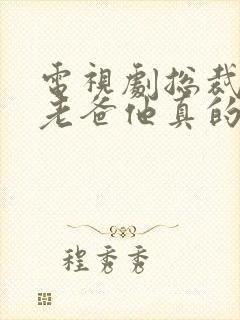 電視劇總裁
老爸他真的
程秀秀